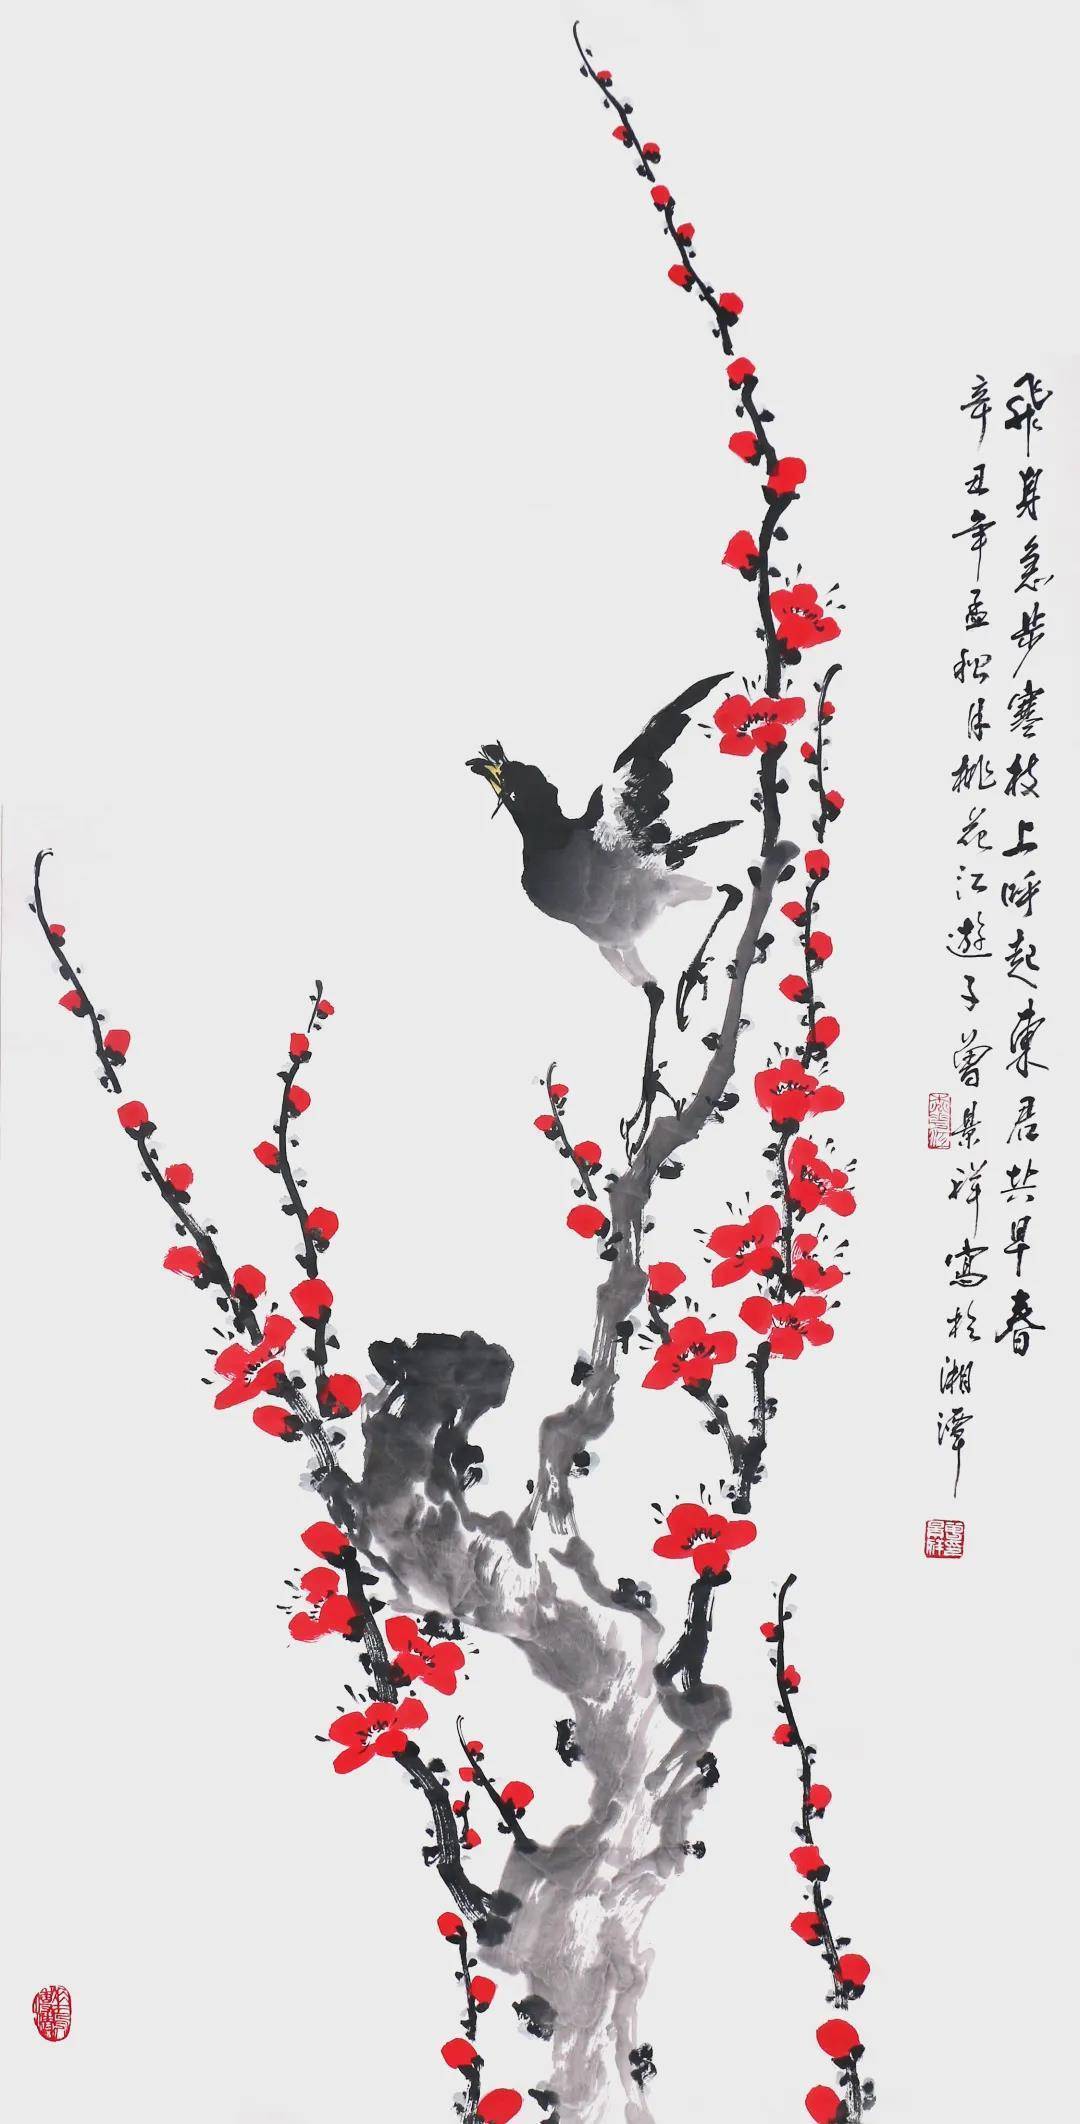 飛身急步寒枝上呼起東君共早春
辛丑年孟秋月桃花江遊子曾景祥寫於湘潭